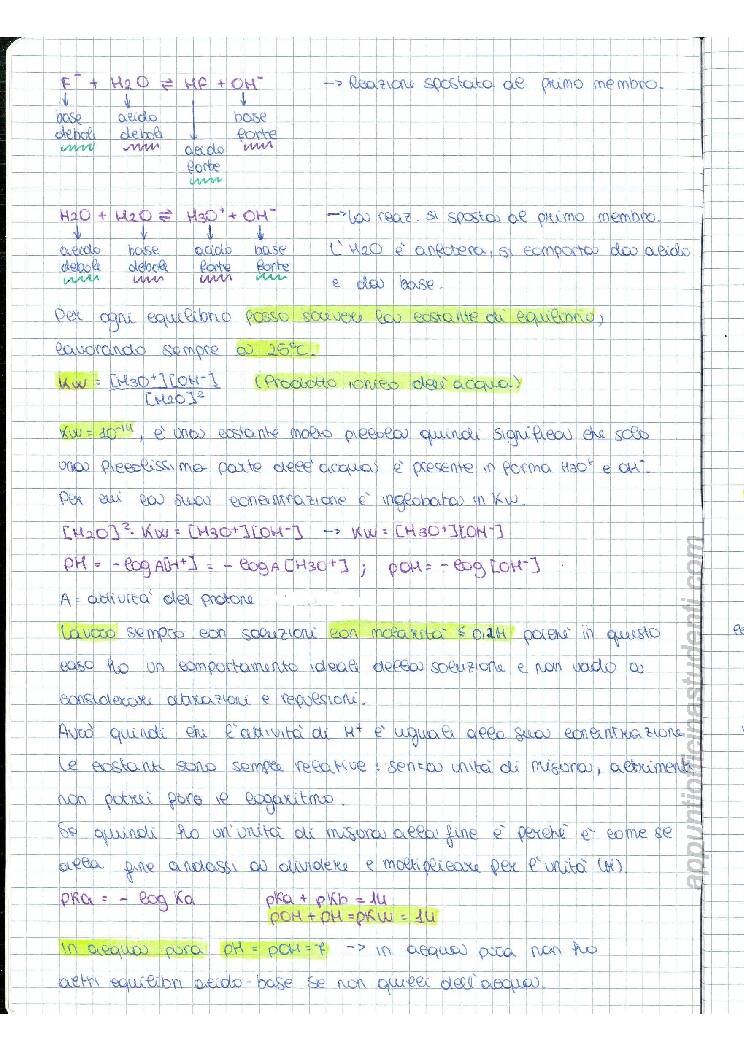 F⁻ + H2O ⇌ HF + OH⁻ → Reazione spostata al primo membro.
base acido base
deboli deboli forte
acido
forte
H2O + H2O ⇌ H3O⁺ + OH⁻ → La reaz. si sposta al primo membro.
acido base acido base L'H2O è anfotera, si comporta da acido
debole debole forte forte e da base.
Per ogni equilibrio posso scrivere la costante di equilibrio,
lavorando sempre a 25°C.
Kw = [H3O⁺][OH⁻] (Prodotto ionico dell'acqua)
[H2O]²
Kw = 10⁻¹⁴, è una costante molto piccola quindi significa che solo
una piccolissima parte dell'acqua è presente in forma H3O⁺ e OH⁻.
Per cui la sua concentrazione è inglobata in Kw.
[H2O]² · Kw = [H3O⁺][OH⁻] → Kw = [H3O⁺][OH⁻]
pH = -log A[H⁺] = -log A [H3O⁺] ; pOH = -log [OH⁻]
A = attività del protone
Lavoro sempre con soluzioni con molarità ≤ 0,1M poiché in questo
caso ho un comportamento ideale della soluzione e non vado a
considerare attrazioni e repulsioni.
Avrò quindi che l'attività di H⁺ è uguale alla sua concentrazione
Le costanti sono sempre relative: senza unità di misura, altrimenti
non potrei fare il logaritmo.
Se quindi ho un'unità di misura alla fine è perché è come se
alla fine andassi a dividere e moltiplicare per l'unità (M).
pKa = - log Ka pKa + pKb = 14
pOH + pH = pKw = 14
In acqua pura pH = pOH = 7 → in acqua pura non ho
altri equilibri acido-base se non quelli dell'acqua.
appuntiofficinastudenti.com